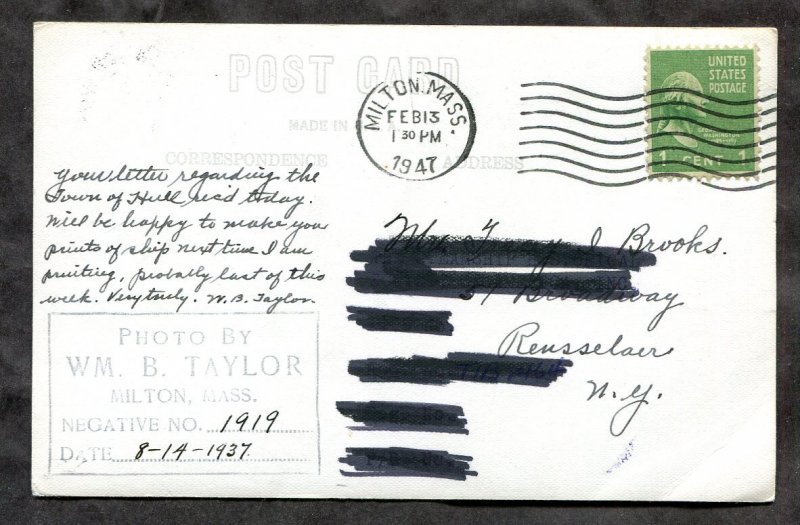 POST CARD
MADE IN
CORRESPONDENCE
ADDRESS
MILTON, MASS.
FEB 13
1 30 PM
1947
UNITED
STATES
POSTAGE
WASHINGTON
1 CENT 1
Your letter regarding the
Town of Hull rec'd today.
Will be happy to make you
prints of ship next time I am
printing, probably last of this
week. Very truly. W. B. Taylor.
J. Brooks.
51 Broadway
Rensselaer
N.Y.
PHOTO BY
WM. B. TAYLOR
MILTON, MASS.
NEGATIVE NO. 1919
DATE 8-14-1937